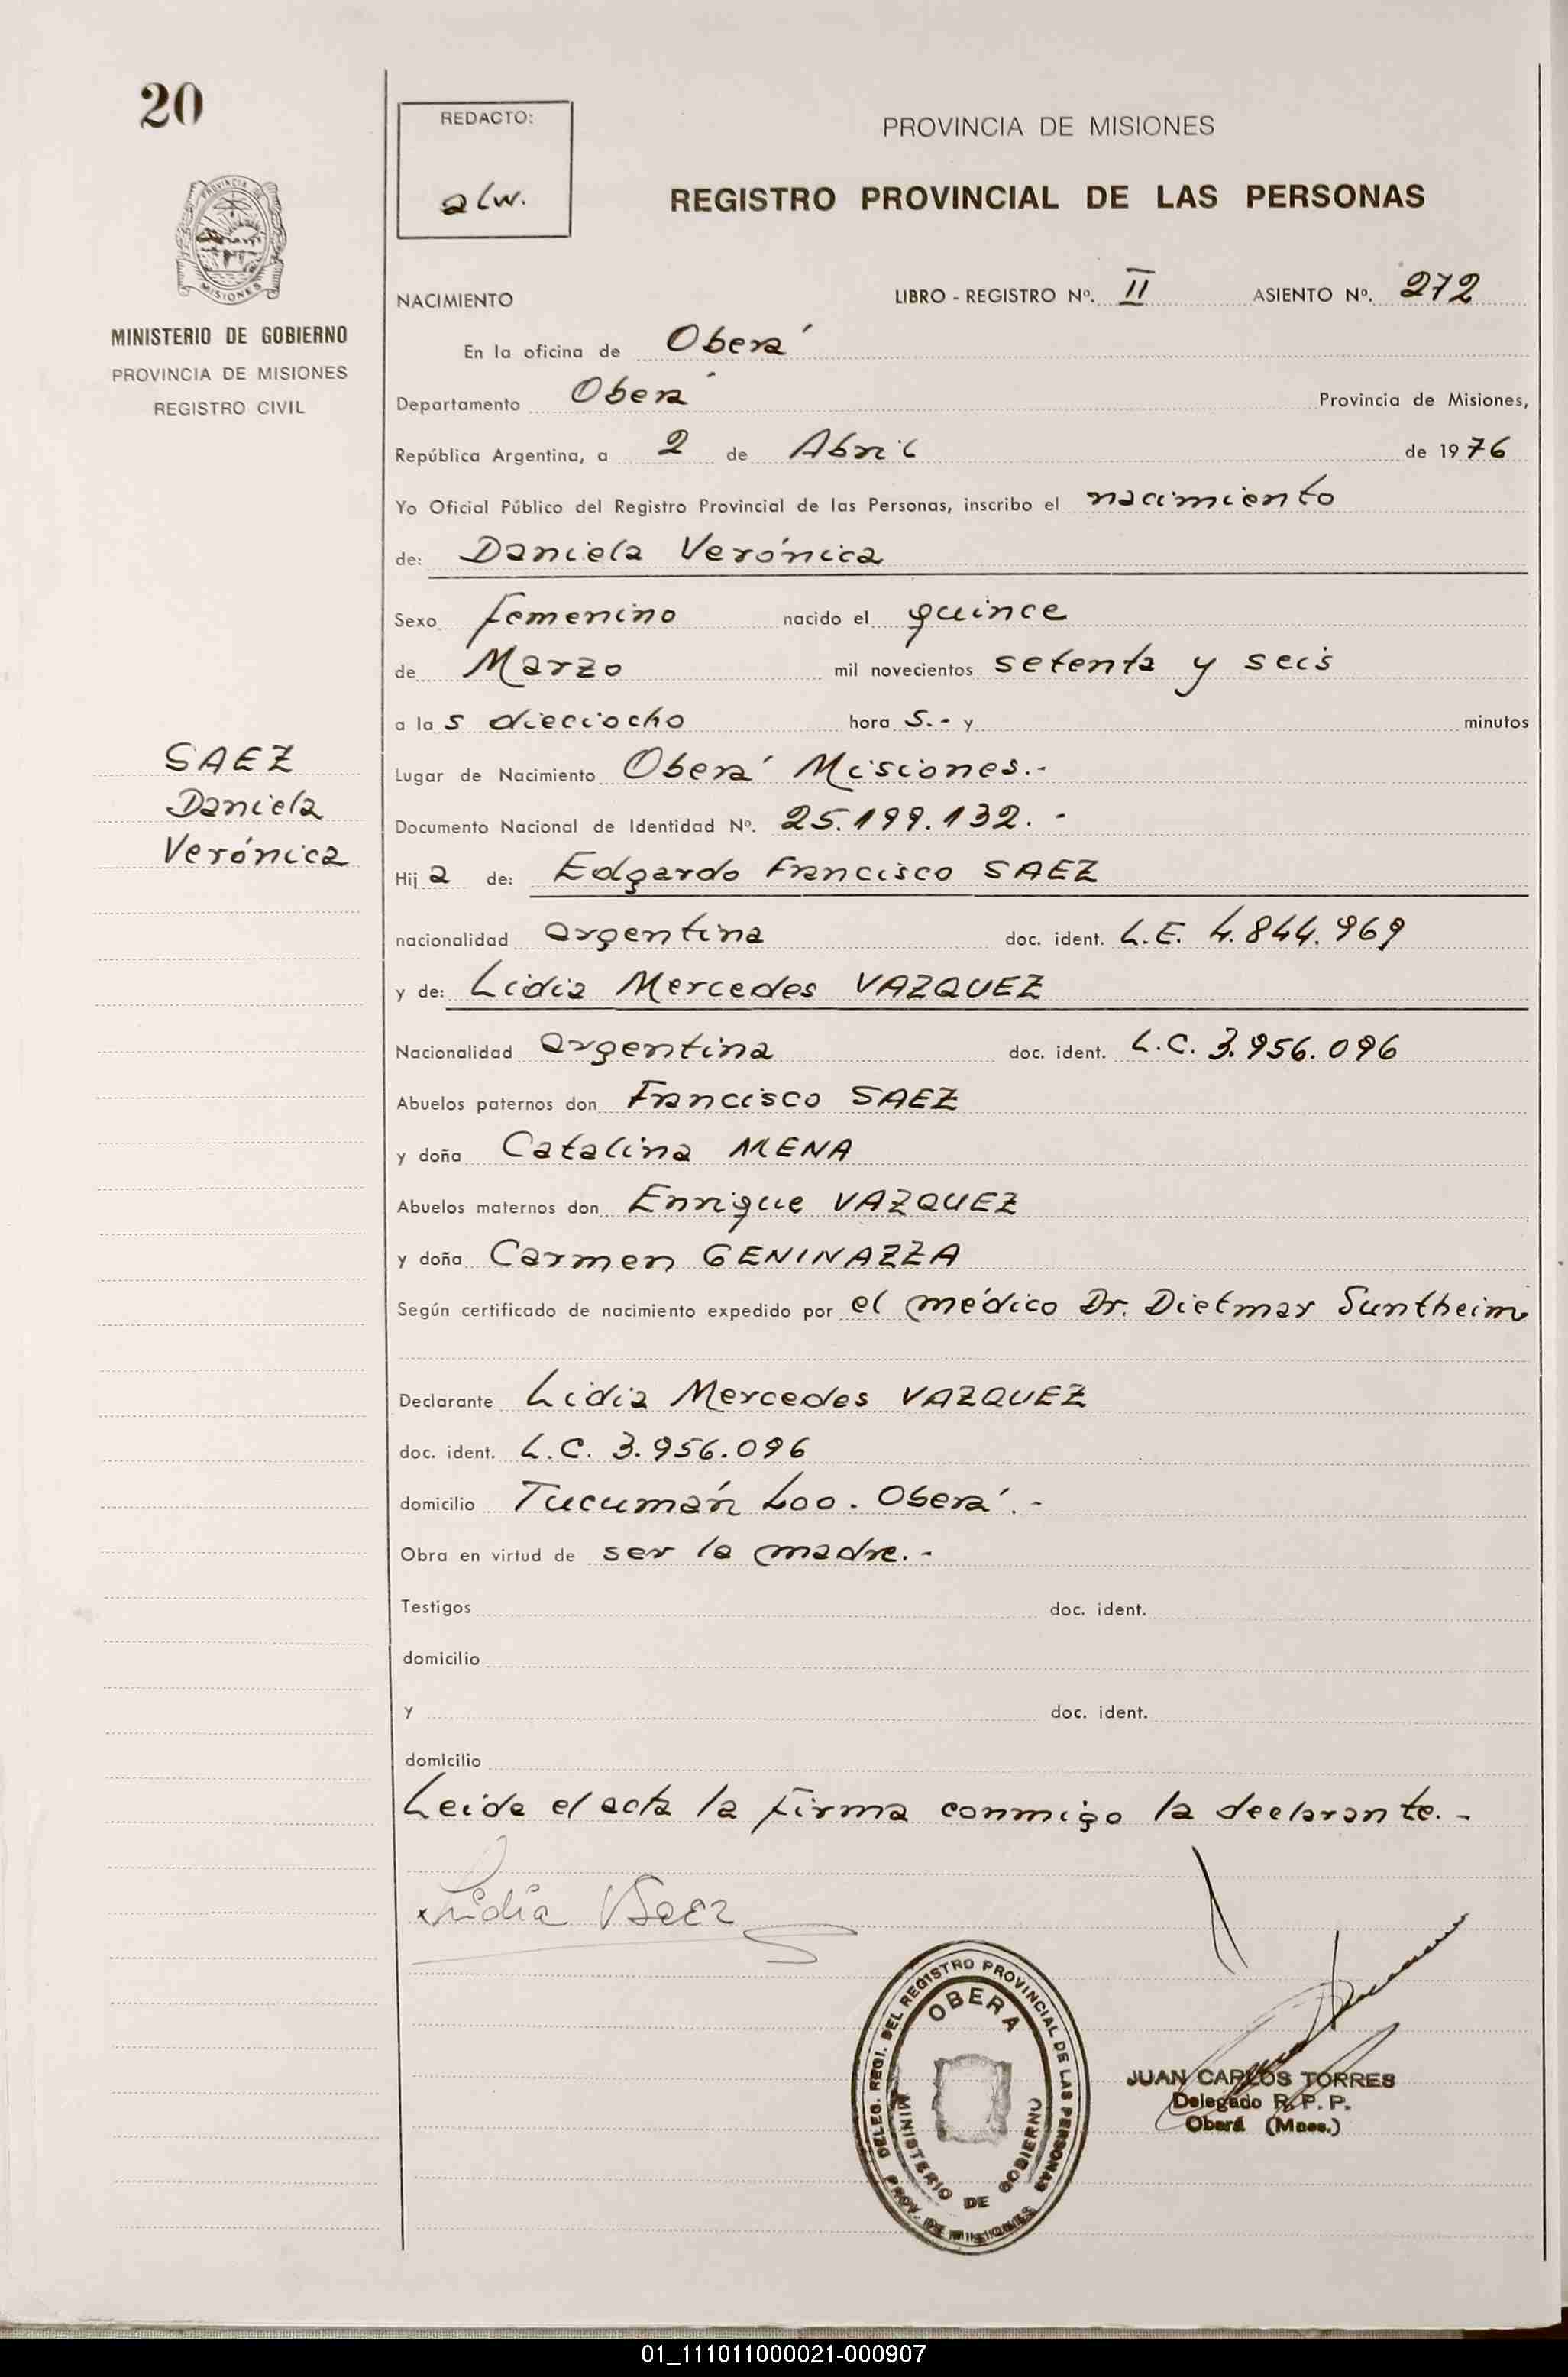 20
REDACTO:
alw.
PROVINCIA DE MISIONES
REGISTRO PROVINCIAL DE LAS PERSONAS
PROVINCIA DE
MISIONES
MINISTERIO DE GOBIERNO
PROVINCIA DE MISIONES
REGISTRO CIVIL
NACIMIENTO LIBRO - REGISTRO Nº. II ASIENTO Nº. 272
En la oficina de Oberá
Departamento Oberá Provincia de Misiones,
República Argentina, a 2 de Abril de 1976
Yo Oficial Público del Registro Provincial de las Personas, inscribo el nacimiento
de: Daniela Verónica
Sexo femenino nacido el quince
de Marzo mil novecientos setenta y seis
a las dieciocho hora s.- y minutos
SAEZ
Daniela
Verónica
Lugar de Nacimiento Oberá Misiones.-
Documento Nacional de Identidad Nº. 25.199.132.-
Hija de: Edgardo Francisco SAEZ
nacionalidad argentina doc. ident. L.E. 4.844.969
y de: Lidia Mercedes VAZQUEZ
Nacionalidad argentina doc. ident. L.C. 3.956.096
Abuelos paternos don Francisco SAEZ
y doña Catalina MENA
Abuelos maternos don Enrique VAZQUEZ
y doña Carmen GENINAZZA
Según certificado de nacimiento expedido por el médico Dr. Dietmar Suntheim
Declarante Lidia Mercedes VAZQUEZ
doc. ident. L.C. 3.956.096
domicilio Tucumán Loo. Oberá.-
Obra en virtud de ser la madre.-
Testigos doc. ident.
domicilio
y doc. ident.
domicilio
Leida el acta la firma conmigo la declarante.-
Lidia VSaez
DELEG. REGI. DEL REGISTRO PROVINCIAL DE LAS PERSONAS
OBERA
MINISTERIO DE GOBIERNO
PROV. DE MISIONES
JUAN CARLOS TORRES
Delegado R. P. P.
Oberá (Mnes.)
01_111011000021-000907